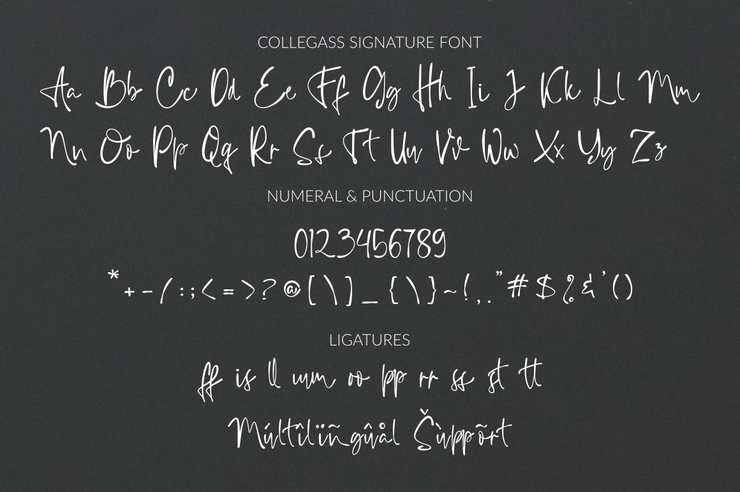 COLLEGASS SIGNATURE FONT
Aa Bb Cc Dd Ee Ff Gg Hh Ii J Kk Ll Mm
Nn Oo Pp Qq Rr Ss Tt Uu Vv Ww Xx Yy Zz
NUMERAL & PUNCTUATION
0123456789
*+-/:;<=>?@[\]_{\}~!,."#$%&'()
LIGATURES
ff is ll mm oo pp rr ss st tt
Múltîlïïñgûål Šùppõrt